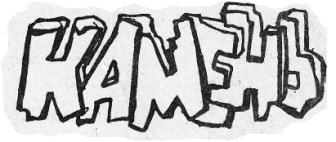 КАМЕНЬ